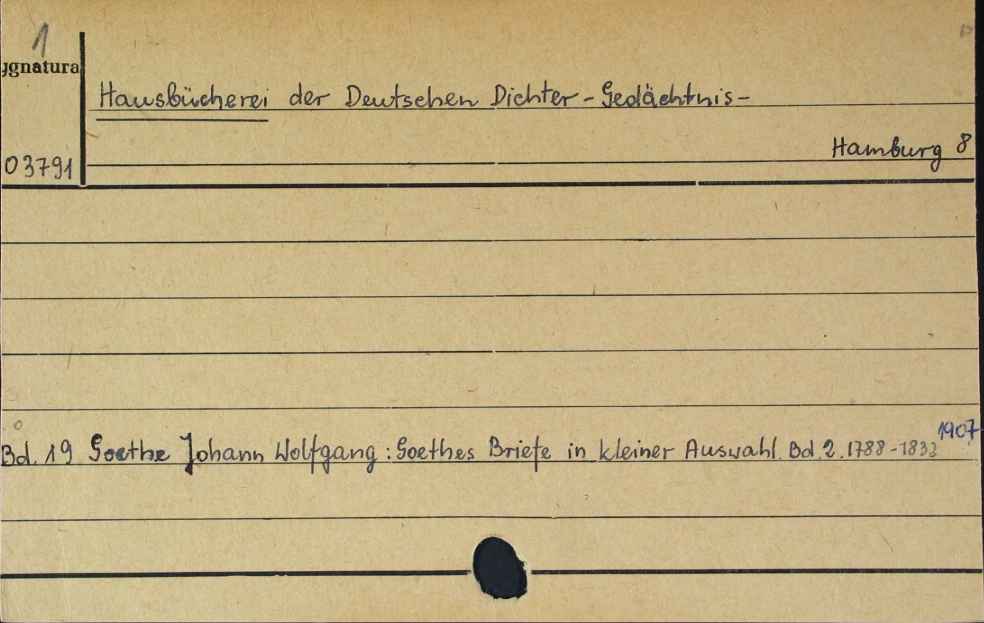 1
ygnatura
Hausbücherei der Deutschen Dichter-Gedächtnis-
Hamburg 8
03791
1907
Bd. 19 Goethe Johann Wolfgang: Goethes Briefe in kleiner Auswahl. Bd. 2. 1788-1832